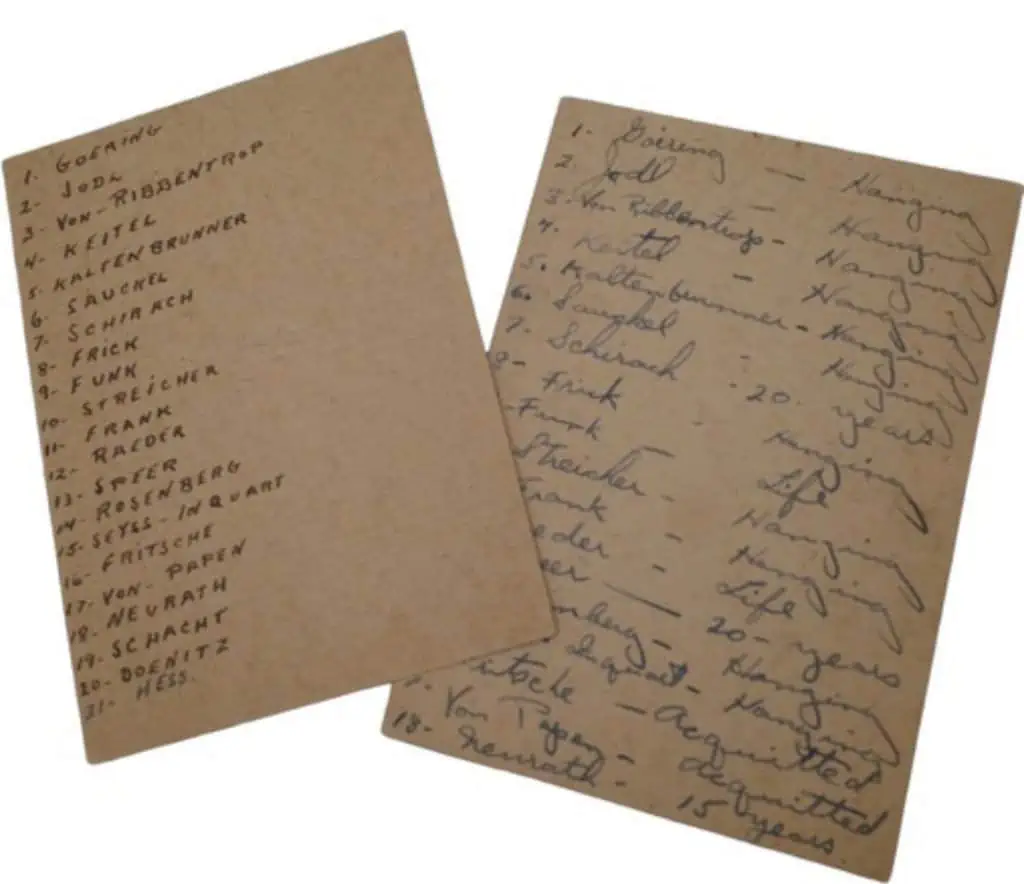 1. GOERING
2- JODL
3- VON-RIBBENTROP
4- KEITEL
5- KALTENBRUNNER
6- SAUCKEL
7- SCHIRACH
8- FRICK
9- FUNK
10- STREICHER
11- FRANK
12- RAEDER
13- SPEER
14- ROSENBERG
15- SEYSS-INQUART
16- FRITSCHE
17- VON-PAPEN
18- NEURATH
19- SCHACHT
20- DOENITZ
21- HESS.
1- Goering — Hanging
2. Jodl — Hanging
3. Von Ribbentrop - Hanging
4. Keitel - Hanging
5. Kaltenbrunner - Hanging
6. Sauckel - Hanging
7. Schirach - 20 years
8- Frick - Hanging
Funk — Life
Streicher - Hanging
Frank - Hanging
eder - Life
eer — 20- years
nberg - Hanging
Inquart - Hanging
itsche - Acquitted
Von Papen - acquitted
18- Neurath - 15 years.